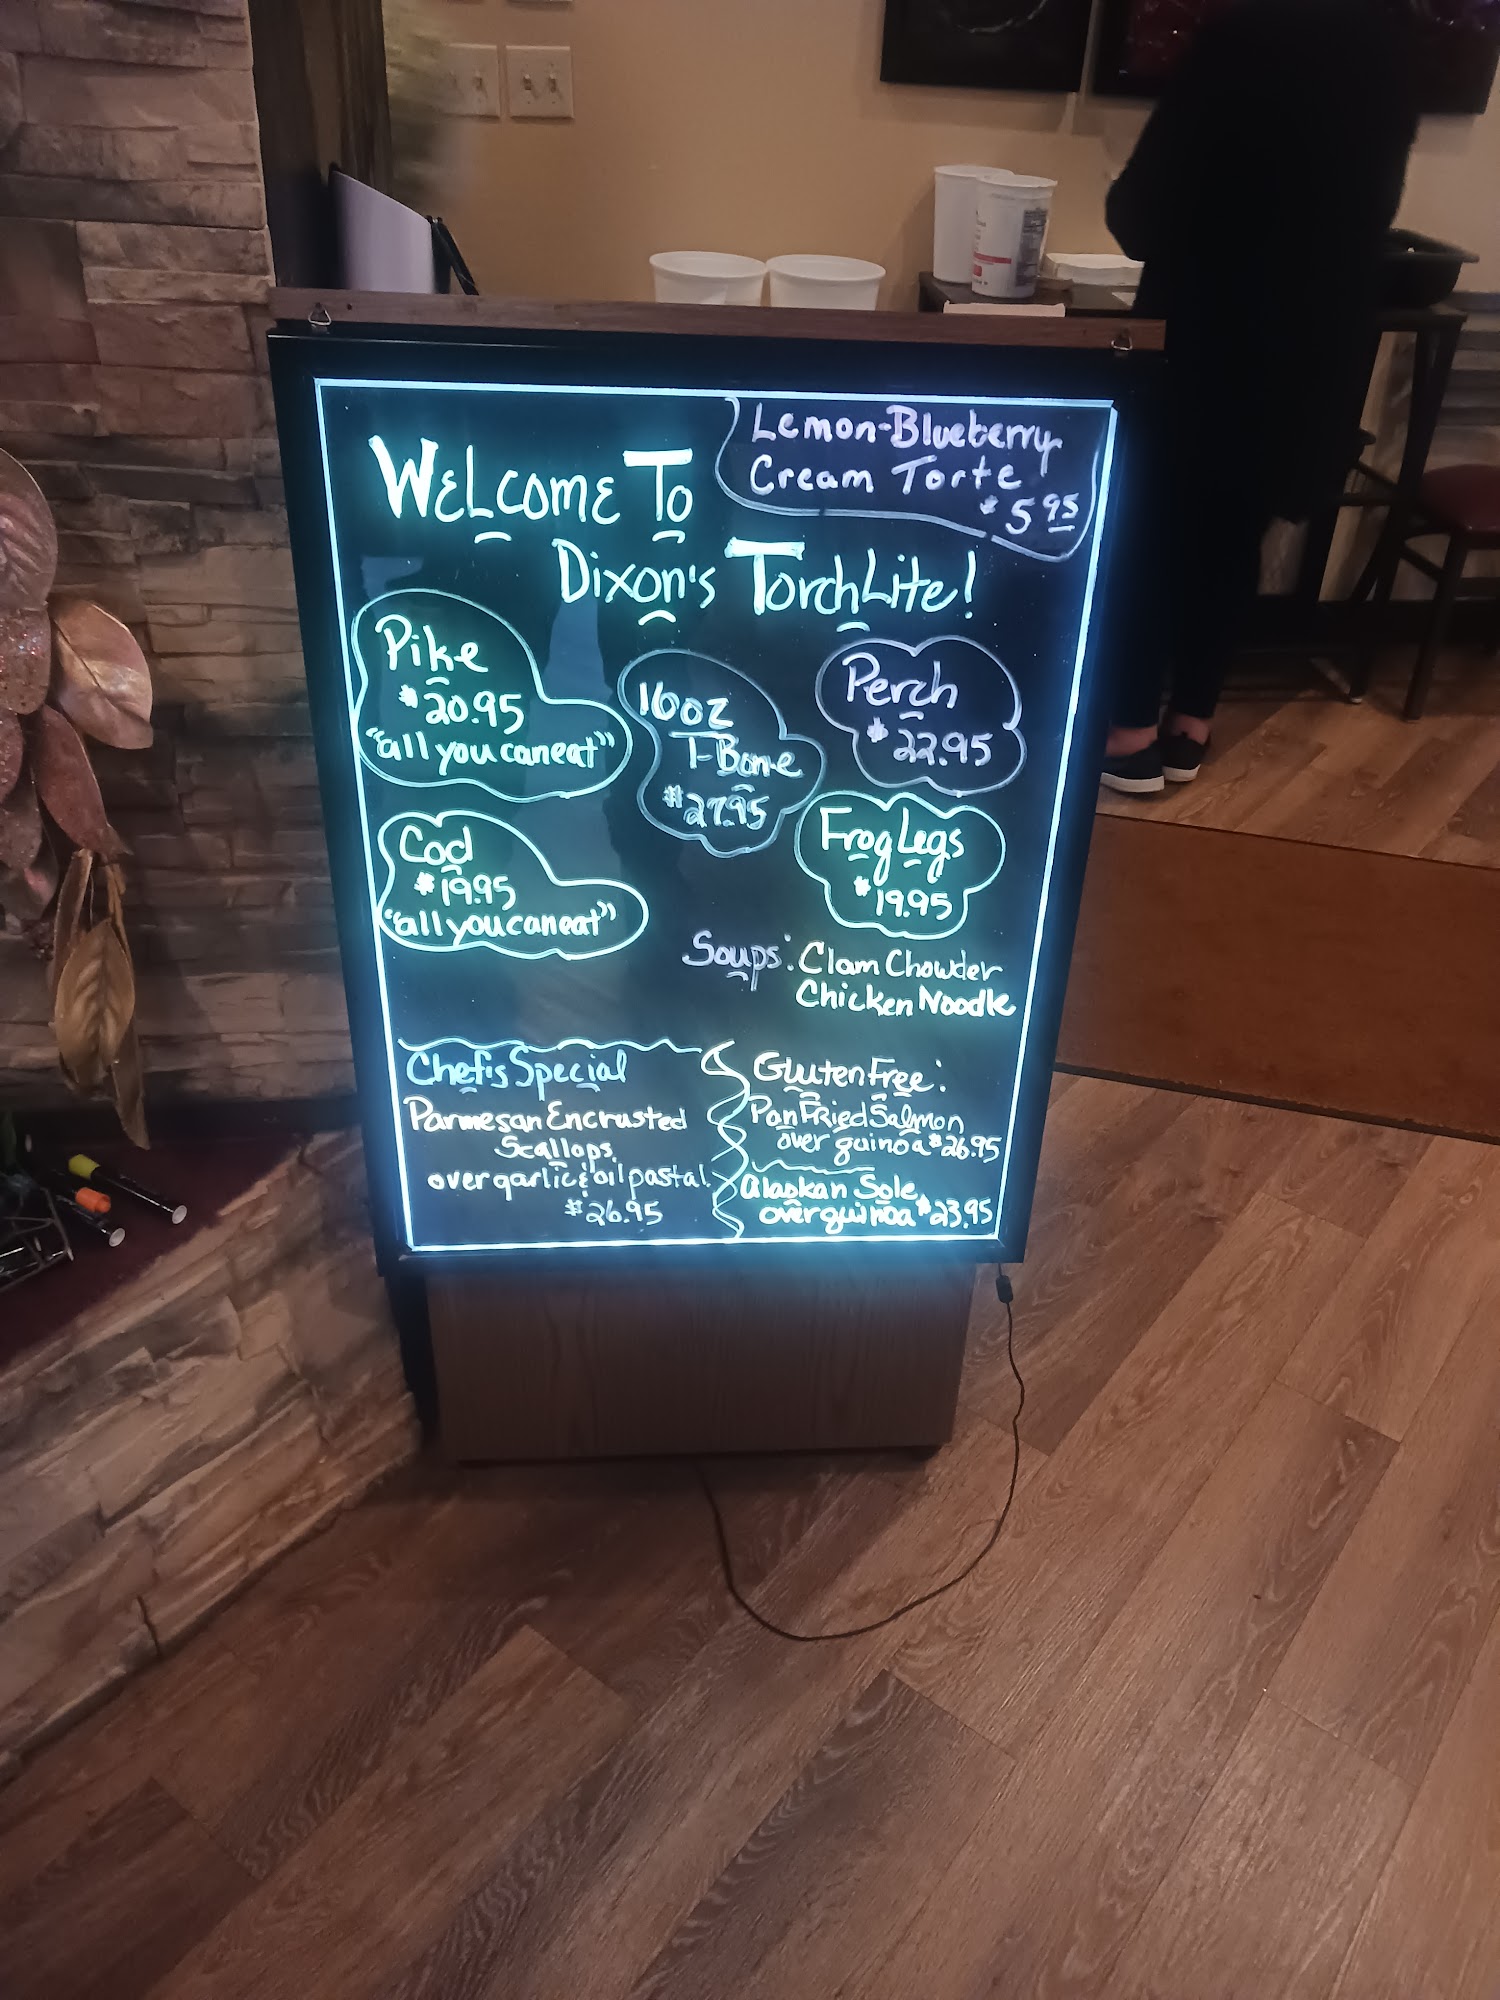 Lemon-Blueberry
Cream Torte
$5 95
Welcome To
Dixon's TorchLite!
Pike
$20.95
"all you can eat"
16oz
T-Bone
$27.95
Perch
$22.95
Cod
$19.95
"all you can eat"
Frog Legs
$19.95
Soups: Clam Chowder
Chicken Noodle
Chef's Special
Parmesan Encrusted
Scallops
over garlic & oil pasta
$26.95
Gluten Free:
Pan Fried Salmon
over quinoa $26.95
Alaskan Sole
over quinoa $23.95